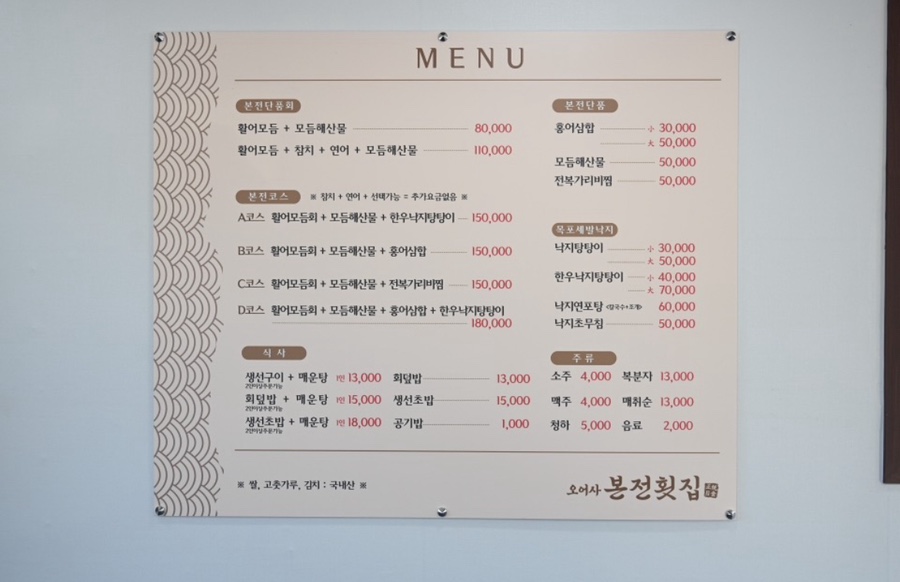 MENU
본전단품회
활어모듬 + 모듬해산물 80,000
활어모듬 + 참치 + 연어 + 모듬해산물 110,000
본전코스 ※ 참치 + 연어 + 선택가능 = 추가요금없음 ※
A코스 활어모듬회 + 모듬해산물 + 한우낙지탕탕이 150,000
B코스 활어모듬회 + 모듬해산물 + 홍어삼합 150,000
C코스 활어모듬회 + 모듬해산물 + 전복가리비찜 150,000
D코스 활어모듬회 + 모듬해산물 + 홍어삼합 + 한우낙지탕탕이
180,000
식사
생선구이 + 매운탕 1인 13,000 회덮밥 13,000
2인이상주문가능
회덮밥 + 매운탕 1인 15,000 생선초밥 15,000
2인이상주문가능
생선초밥 + 매운탕 1인 18,000 공기밥 1,000
2인이상주문가능
본전단품
홍어삼합 小 30,000
大 50,000
모듬해산물 50,000
전복가리비찜 50,000
목포세발낙지
낙지탕탕이 小 30,000
大 50,000
한우낙지탕탕이 小 40,000
大 70,000
낙지연포탕 <칼국수+조개> 60,000
낙지초무침 50,000
주류
소주 4,000 복분자 13,000
맥주 4,000 매취순 13,000
청하 5,000 음료 2,000
※ 쌀, 고춧가루, 김치 : 국내산 ※
오어사 본전횟집